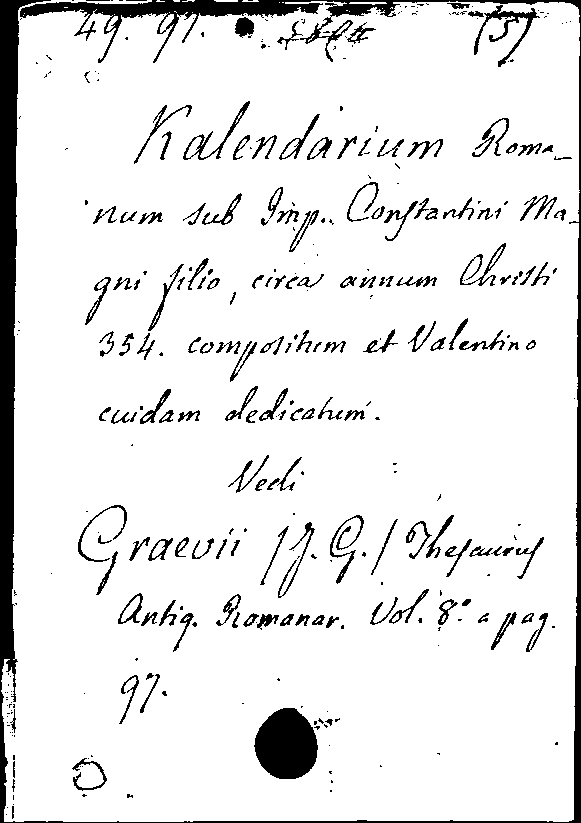 49. 97. (5)
Kalendarium Roma-
num sub Imp. Constantini Ma-
gni filio, circa annum Christi
354. compositum et Valentino
cuidam dedicatum.
Vedi
Graevii /J. G./ Thesaurus
Antiq. Romanar. Vol. 8.º a pag.
97.